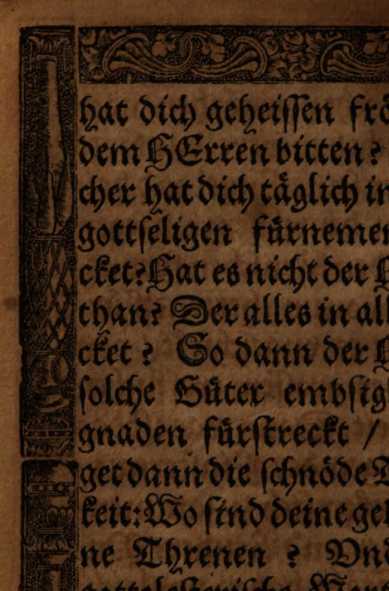 hat dich geheissen frö
dem HErren bitten?
cher hat dich täglich in
gottseligen fürnemen
cket? Hat es nicht der
than? Der alles in all
cket? So dann der
solche Güter embsig
gnaden fürstreckt /
get dann die schnöde
keit: Wo sind deine ge
ne Threnen? Vnd